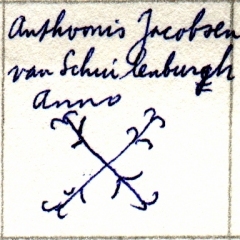 Anthoonis Jacobsen
van Schuilenburgh
Anno